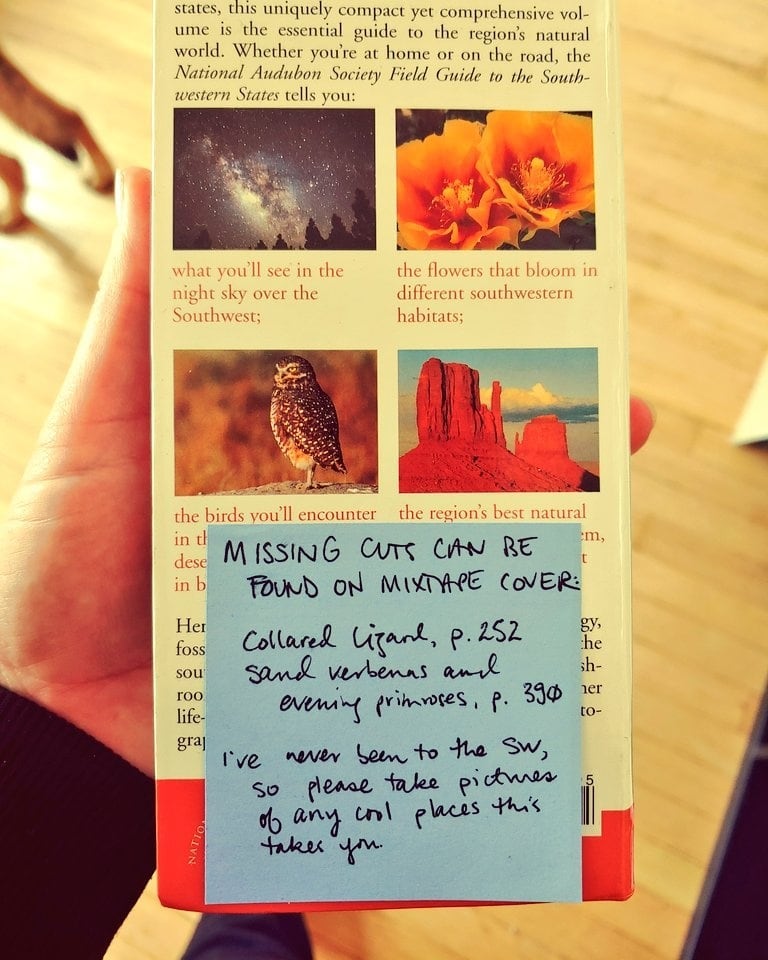 states, this uniquely compact yet comprehensive vol-
ume is the essential guide to the region's natural
world. Whether you're at home or on the road, the
National Audubon Society Field Guide to the South-
western States tells you:
what you'll see in the
night sky over the
Southwest;
the flowers that bloom in
different southwestern
habitats;
the birds you'll encounter
in th
dese
in b
the region's best natural
em,
t
Her
foss
sou
roo
life-
grap
gy,
the
sh-
her
to-
MISSING CUTS CAN BE
FOUND ON MIXTAPE COVER:
Collared lizard, p. 252
sand verbenas and
evening primroses, p. 390
I've never been to the SW,
so please take pictures
of any cool places this
takes you.
5
NATIO